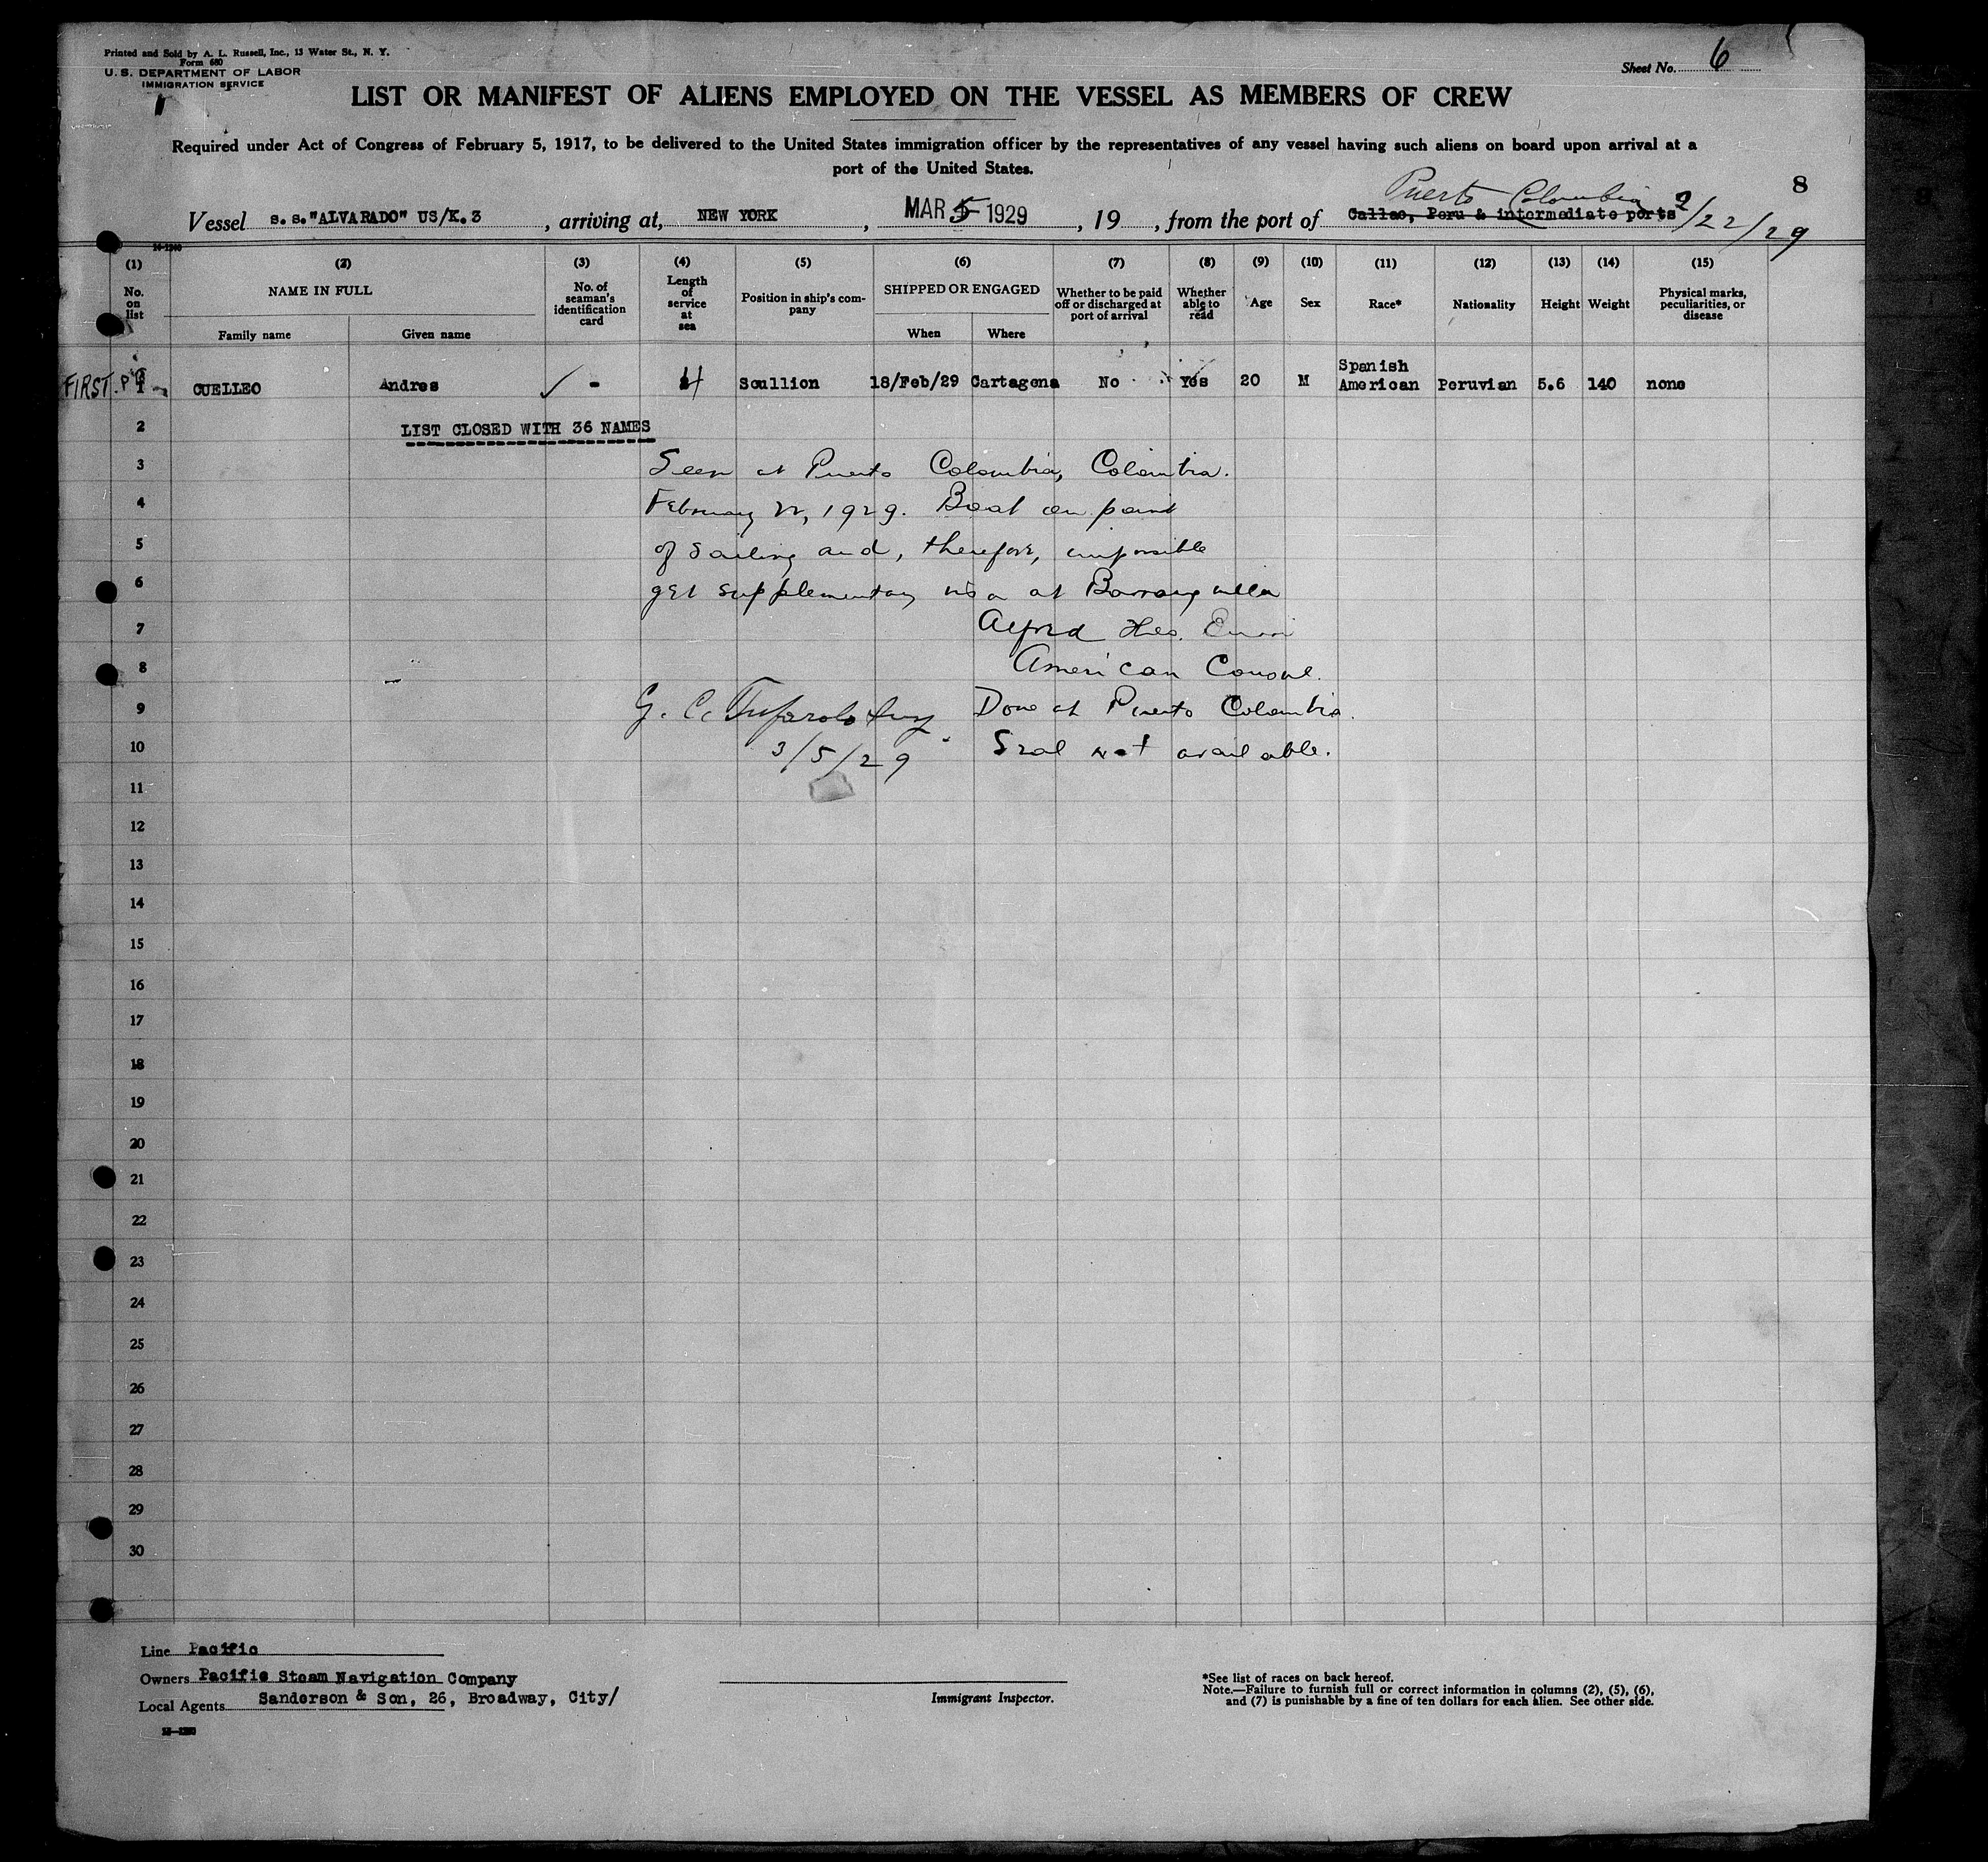 Printed and Sold by A. L. Russell, Inc., 13 Water St., N. Y.
Form 680
U. S. DEPARTMENT OF LABOR
IMMIGRATION SERVICE
Sheet No. 6
LIST OR MANIFEST OF ALIENS EMPLOYED ON THE VESSEL AS MEMBERS OF CREW
Required under Act of Congress of February 5, 1917, to be delivered to the United States immigration officer by the representatives of any vessel having such aliens on board upon arrival at a
port of the United States.
8
Puerto Colombia 2/22/29
Vessel s.s."ALVARADO" US/K.3, arriving at, NEW YORK, MAR 5 1929, 19 , from the port of Callao, Peru & intermediate ports
(1) (2) (3) (4) (5) (6) (7) (8) (9) (10) (11) (12) (13) (14) (15)
No. on list NAME IN FULL Family name Given name No. of seaman's identification card Length of service at sea Position in ship's company SHIPPED OR ENGAGED When Where Whether to be paid off or discharged at port of arrival Whether able to read Age Sex Race* Nationality Height Weight Physical marks, peculiarities, or disease
FIRST 1 CUELLEO Andres ✓ - 4 Scullion 18/Feb/29 Cartagena No Yes 20 M Spanish American Peruvian 5.6 140 none
2 LIST CLOSED WITH 36 NAMES
3 Seen at Puerto Colombia, Colombia.
4 February 22, 1929. Boat on point
5 of sailing and, therefore, impossible
6 get supplementary visa at Barranquilla
7 Alfred Theo.
8 American Consul.
9 G. C. Done at Puerto Colombia.
10 3/5/29 Seal not available.
11
12
13
14
15
16
17
18
19
20
21
22
23
24
25
26
27
28
29
30
Line Pacific
Owners Pacific Steam Navigation Company
Local Agents Sanderson & Son, 26, Broadway, City/
Immigrant Inspector.
*See list of races on back hereof.
Note.—Failure to furnish full or correct information in columns (2), (5), (6),
and (7) is punishable by a fine of ten dollars for each alien. See other side.